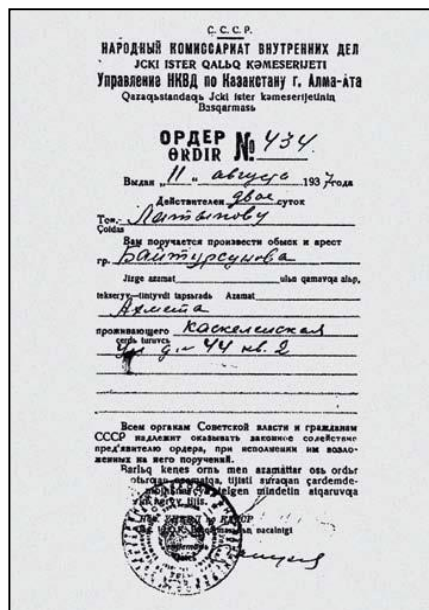 С.С.С.Р.
НАРОДНЫЙ КОМИССАРИАТ ВНУТРЕННИХ ДЕЛ
JCKI ISTER QALЬQ KƏMESERIJETI
Управление НКВД по Казакстану г. Алма-Ата
Qazaqьstandaqь Jcki Ister kəmeserijetinin
Basqarmasь
ОРДЕР
ӨRDIR № 434.
Выдан „11“ августа 1937 года
Действителен двое суток
Тов. Латыпову
Çoldas
Вам поручается произвести обыск и арест
гр. Байтурсунова
Jizge azamat ulьn qamavqa alьp,
tekseryv—tintyvdi tapsьradь Azamat
Ахмета
проживающего Каскеленская
cerdь turuvcь
ул. д. № 44 кв. 2
Всем органам Советской власти и гражданам
СССР надлежит оказывать законное содействие
пред'явителю ордера, при исполнении им возло-
женных на него поручений.
Barlьq kenes ornь men azamattar osь ordьr
tijisti suraqan çardemde-
mindetin atqaruvqa
tijis.